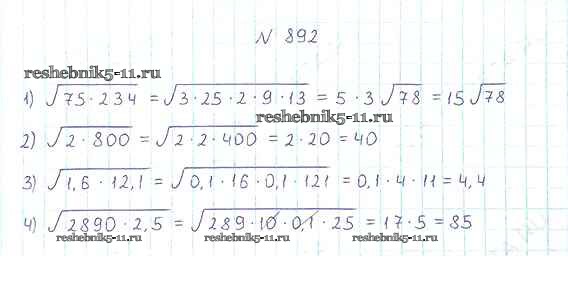 N 892
reshebnik5-11.ru
1) √75·234 = √3·25·2·9·13 = 5·3√78 = 15√78
reshebnik5-11.ru
2) √2·800 = √2·2·400 = 2·20 = 40
3) √1,6·12,1 = √0,1·16·0,1·121 = 0,1·4·11 = 4,4
4) √2890·2,5 = √289·10·0,1·25 = 17·5 = 85
reshebnik5-11.ru reshebnik5-11.ru reshebnik5-11.ru